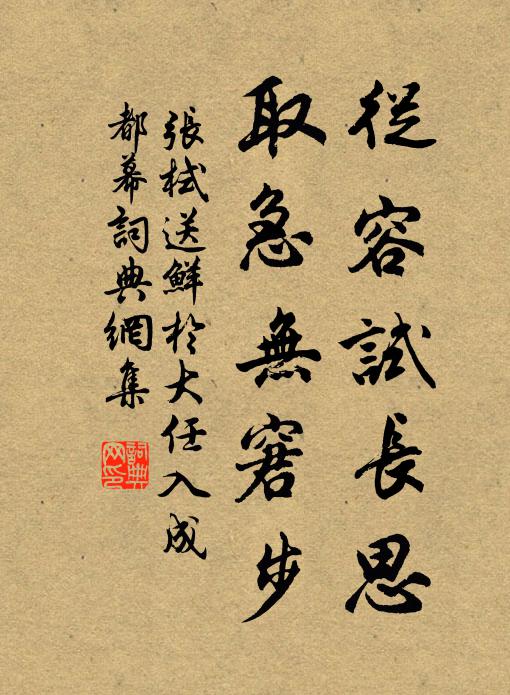 從容試長思
取急無窘步
張栻送鮮於大任入成
都幕詞典網集
詞典網印